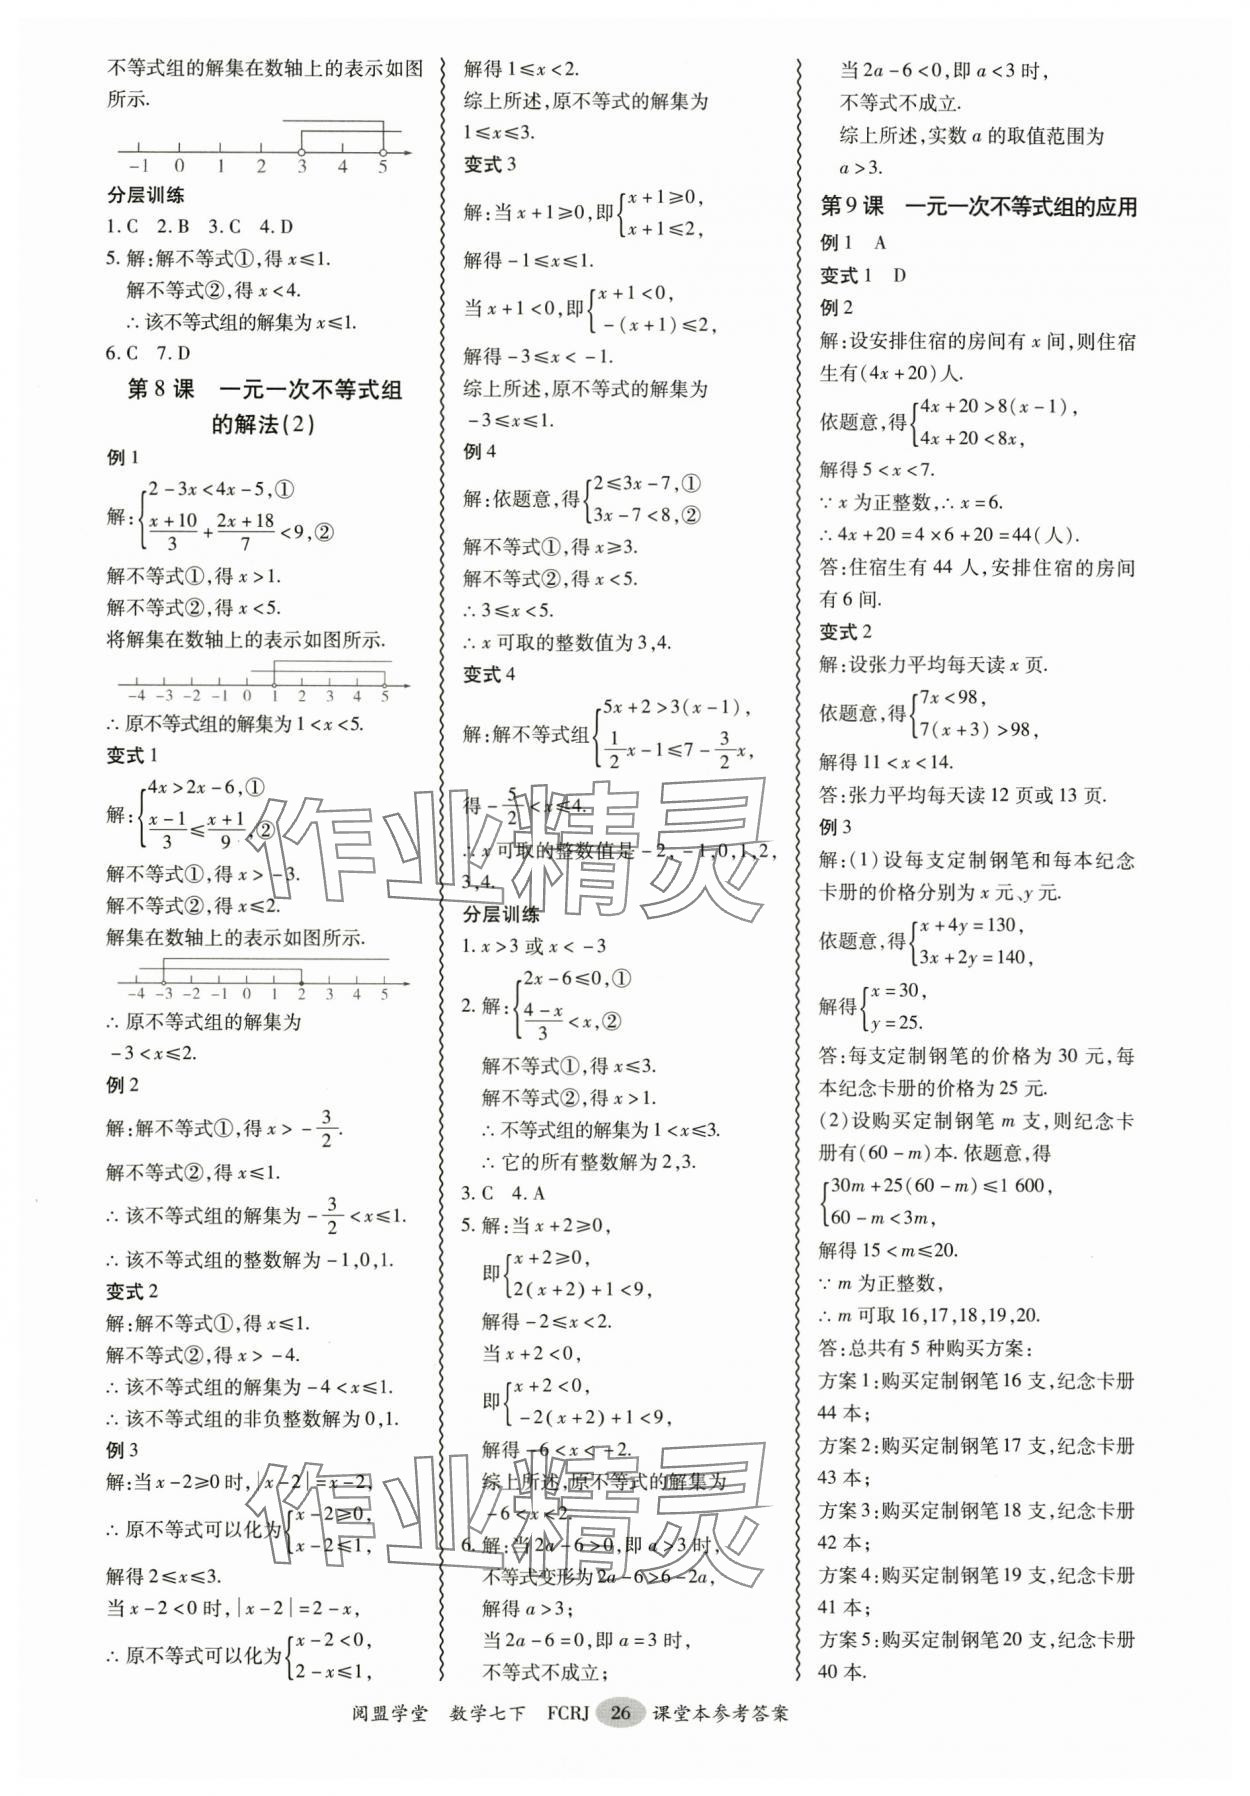 不等式组的解集在数轴上的表示如图
所示.
-1 0 1 2 3 4 5
分层训练
1. C 2. B 3. C 4. D
5. 解:解不等式①,得 x≤1.
解不等式②,得 x<4.
∴该不等式组的解集为 x≤1.
6. C 7. D
第 8 课 一元一次不等式组
的解法(2)
例 1
解:{2-3x<4x-5,①
(x+10)/3+(2x+18)/7<9,②
解不等式①,得 x>1.
解不等式②,得 x<5.
将解集在数轴上的表示如图所示.
-4 -3 -2 -1 0 1 2 3 4 5
∴原不等式组的解集为 1<x<5.
变式 1
解:{4x>2x-6,①
(x-1)/3≤(x+1)/9,②
解不等式①,得 x>-3.
解不等式②,得 x≤2.
解集在数轴上的表示如图所示.
-4 -3 -2 -1 0 1 2 3 4 5
∴原不等式组的解集为
-3<x≤2.
例 2
解:解不等式①,得 x>-3/2.
解不等式②,得 x≤1.
∴该不等式组的解集为-3/2<x≤1.
∴该不等式组的整数解为-1,0,1.
变式 2
解:解不等式①,得 x≤1.
解不等式②,得 x>-4.
∴该不等式组的解集为-4<x≤1.
∴该不等式组的非负整数解为 0,1.
例 3
解:当 x-2≥0 时,|x-2|=x-2,
∴原不等式可以化为{x-2≥0,
x-2≤1,
解得 2≤x≤3.
当 x-2<0 时,|x-2|=2-x,
∴原不等式可以化为{x-2<0,
2-x≤1,
解得 1≤x<2.
综上所述,原不等式的解集为
1≤x≤3.
变式 3
解:当 x+1≥0,即{x+1≥0,
x+1≤2,
解得-1≤x≤1.
当 x+1<0,即{x+1<0,
-(x+1)≤2,
解得-3≤x<-1.
综上所述,原不等式的解集为
-3≤x≤1.
例 4
解:依题意,得{2≤3x-7,①
3x-7<8,②
解不等式①,得 x≥3.
解不等式②,得 x<5.
∴3≤x<5.
∴x 可取的整数值为 3,4.
变式 4
解:解不等式组{5x+2>3(x-1),
1/2x-1≤7-3/2x,
得-5/2<x≤4.
∴x 可取的整数值是-2,-1,0,1,2,
3,4.
分层训练
1. x>3 或 x<-3
2. 解:{2x-6≤0,①
(4-x)/3<x,②
解不等式①,得 x≤3.
解不等式②,得 x>1.
∴不等式组的解集为 1<x≤3.
∴它的所有整数解为 2,3.
3. C 4. A
5. 解:当 x+2≥0,
即{x+2≥0,
2(x+2)+1<9,
解得-2≤x<2.
当 x+2<0,
即{x+2<0,
-2(x+2)+1<9,
解得-6<x<-2.
综上所述,原不等式的解集为
-6<x<2.
6. 解:当 2a-6>0,即 a>3 时,
不等式变形为 2a-6>6-2a,
解得 a>3;
当 2a-6=0,即 a=3 时,
不等式不成立;
当 2a-6<0,即 a<3 时,
不等式不成立.
综上所述,实数 a 的取值范围为
a>3.
第 9 课 一元一次不等式组的应用
例 1 A
变式 1 D
例 2
解:设安排住宿的房间有 x 间,则住宿
生有(4x+20)人.
依题意,得{4x+20>8(x-1),
4x+20<8x,
解得 5<x<7.
∵x 为正整数,∴x=6.
∴4x+20=4×6+20=44(人).
答:住宿生有 44 人,安排住宿的房间
有 6 间.
变式 2
解:设张力平均每天读 x 页.
依题意,得{7x<98,
7(x+3)>98,
解得 11<x<14.
答:张力平均每天读 12 页或 13 页.
例 3
解:(1)设每支定制钢笔和每本纪念
卡册的价格分别为 x 元、y 元.
依题意,得{x+4y=130,
3x+2y=140,
解得{x=30,
y=25.
答:每支定制钢笔的价格为 30 元,每
本纪念卡册的价格为 25 元.
(2)设购买定制钢笔 m 支,则纪念卡
册有(60-m)本. 依题意,得
{30m+25(60-m)≤1 600,
60-m<3m,
解得 15<m≤20.
∵m 为正整数,
∴m 可取 16,17,18,19,20.
答:总共有 5 种购买方案:
方案 1:购买定制钢笔 16 支,纪念卡册
44 本;
方案 2:购买定制钢笔 17 支,纪念卡册
43 本;
方案 3:购买定制钢笔 18 支,纪念卡册
42 本;
方案 4:购买定制钢笔 19 支,纪念卡册
41 本;
方案 5:购买定制钢笔 20 支,纪念卡册
40 本.
作业精灵
作业精灵
阅盟学堂 数学七下 FCRJ 26 课堂本参考答案